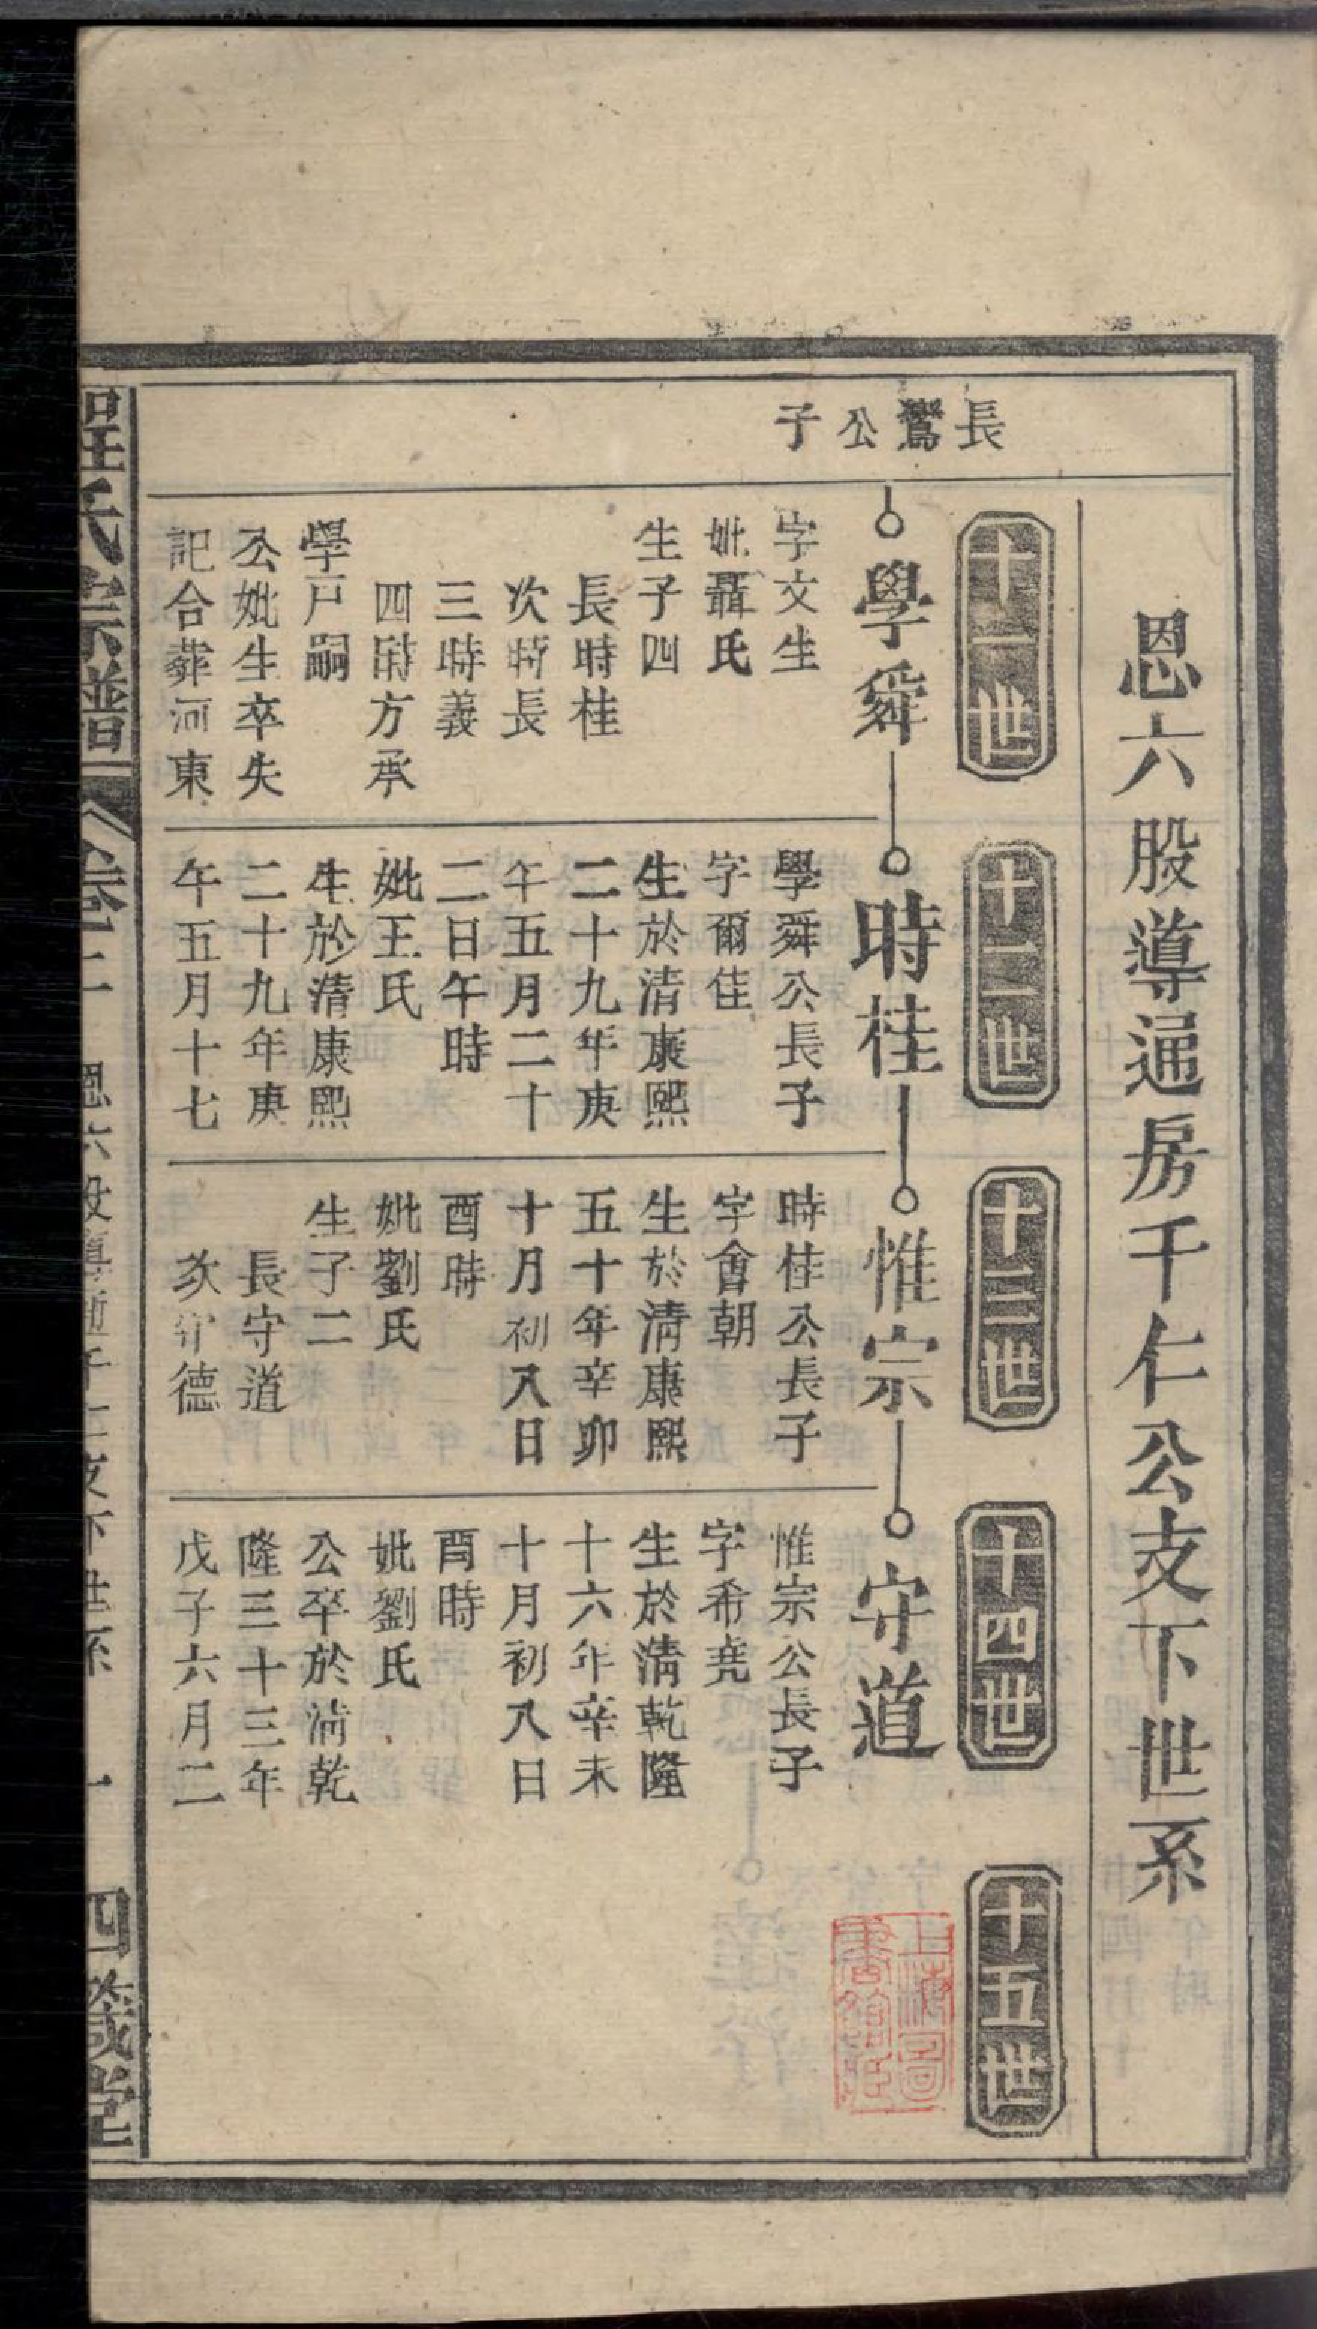 恩六股導通房千仁公支下世系
十一世
十二世
十三世
十四世
十五世
長鷟公子
學舜
字文生
妣聶氏
生子四
長時桂
次時長
三時義
四時方承
學戸嗣
公妣生卒失
記合葬河東
時桂
學舜公長子
字爾佳
生於清康熙
二十九年庚
午五月二十
二日午時
妣王氏
生於清康熙
二十九年庚
午五月十七
惟宗
時桂公長子
字會朝
生於清康熙
五十年辛卯
十月初八日
酉時
妣劉氏
生子二
長守道
次守德
守道
惟宗公長子
字希堯
生於清乾隆
十六年辛未
十月初八日
酉時
妣劉氏
公卒於淸乾
隆三十三年
戊子六月二
上海圖
書館藏
氏宗譜
卷二
恩六股導通千仁支下世系
一
四箴堂